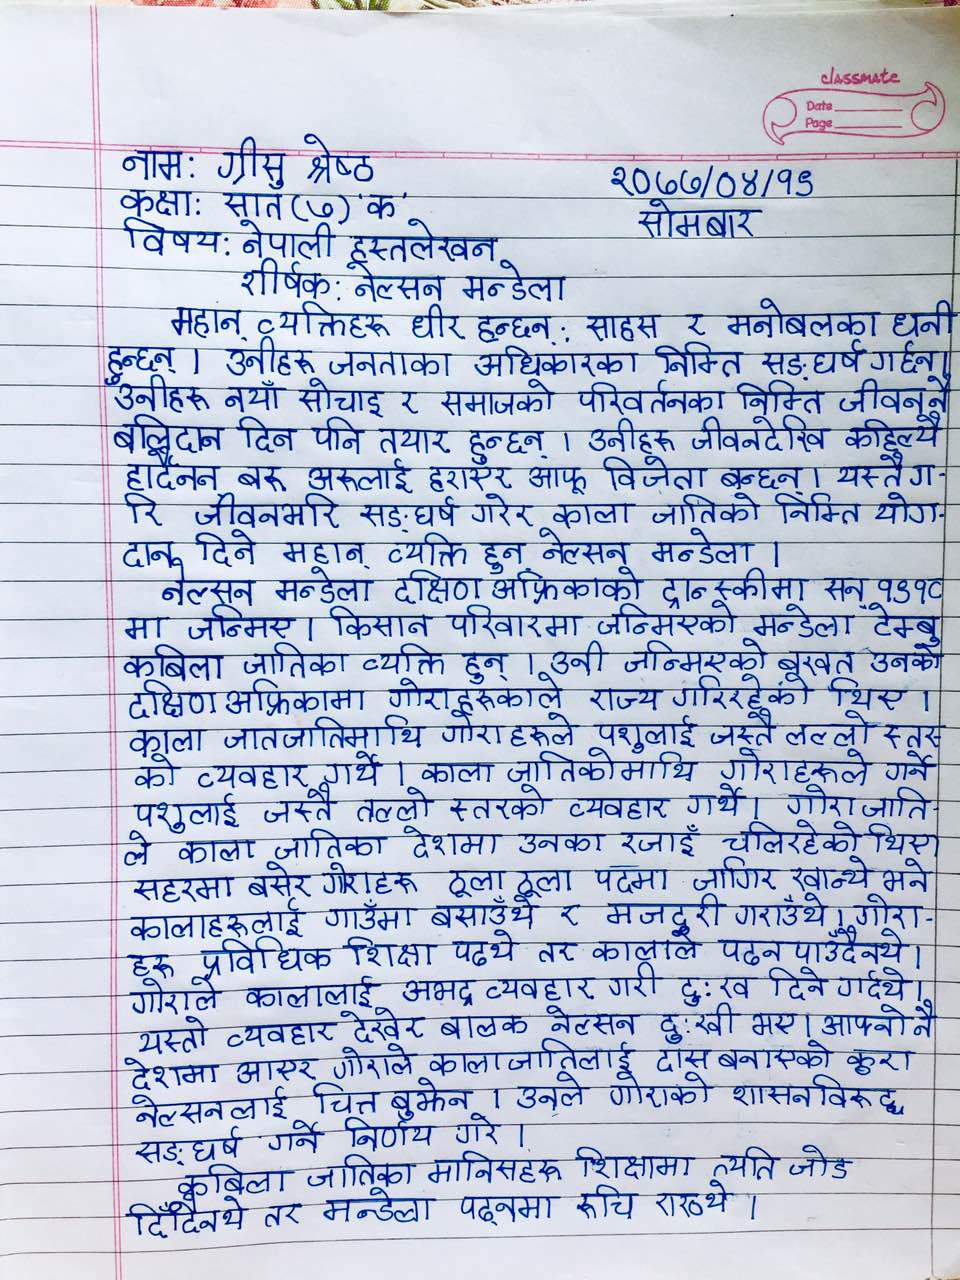 classmate
Date
Page
नाम: ग्रीसु श्रेष्ठ
२०७७/०४/१९
कक्षा: सात(७) 'क'
सोमबार
विषय: नेपाली हस्तलेखन
शीर्षक: नेल्सन मन्डेला
महान् व्यक्तिहरू धीर हुन्छन्; साहस र मनोबलका धनी
हुन्छन् । उनीहरू जनताका अधिकारका निम्ति सङ्घर्ष गर्छन् ।
उनीहरू नयाँ सोचाइ र समाजको परिवर्तनका निम्ति जीवननै
बलिदान दिन पनि तयार हुन्छन् । उनीहरू जीवनदेखि कहिल्यै
हार्दैनन बरू अरूलाई हराएर आफू विजेता बन्छन् । यस्तै ग-
रि जीवनभरि सङ्घर्ष गरेर काला जातिको निम्ति योग-
दान दिने महान् व्यक्ति हुन् नेल्सन मन्डेला ।
नेल्सन मन्डेला दक्षिण अफ्रिकाको ट्रान्स्कीमा सन् १९१८
मा जन्मिए । किसान परिवारमा जन्मिएको मन्डेला टेम्बु
कबिला जातिका व्यक्ति हुन् । उनी जन्मिएको बखत उनको
दक्षिण अफ्रिकामा गोराहरूकाले राज्य गरिरहेको थिए ।
काला जातजातिमाथि गोराहरूले पशुलाई जस्तै तल्लो स्तर
को व्यवहार गर्थे । काला जातिकोमाथि गोराहरूले गर्ने
पशुलाई जस्तै तल्लो स्तरको व्यवहार गर्थे । गोरा जाति-
ले काला जातिका देशमा उनका रजाइँ चलिरहेको थिए ।
सहरमा बसेर गोराहरू ठूला ठूला पदमा जागिर खान्थे भने
कालाहरूलाई गाउँमा बसाउँथे र मजदुरी गराउँथे । गोरा-
हरू प्रविधिक शिक्षा पढ्थे तर कालाले पढ्न पाउँदैनथे ।
गोराले कालालाई अभद्र व्यवहार गरी दुःख दिने गर्दथे ।
यस्तो व्यवहार देखेर बालक नेल्सन दुःखी भए । आफ्नो नै
देशमा आएर गोराले काला जातिलाई दास बनाएको कुरा
नेल्सनलाई चित्त बुझेन । उनले गोराको शासनविरुद्ध
सङ्घर्ष गर्ने निर्णय गरे ।
कबिला जातिका मानिसहरू शिक्षामा त्यति जोड
दिँदैनथे तर मन्डेला पढ्नमा रूचि राख्थे ।